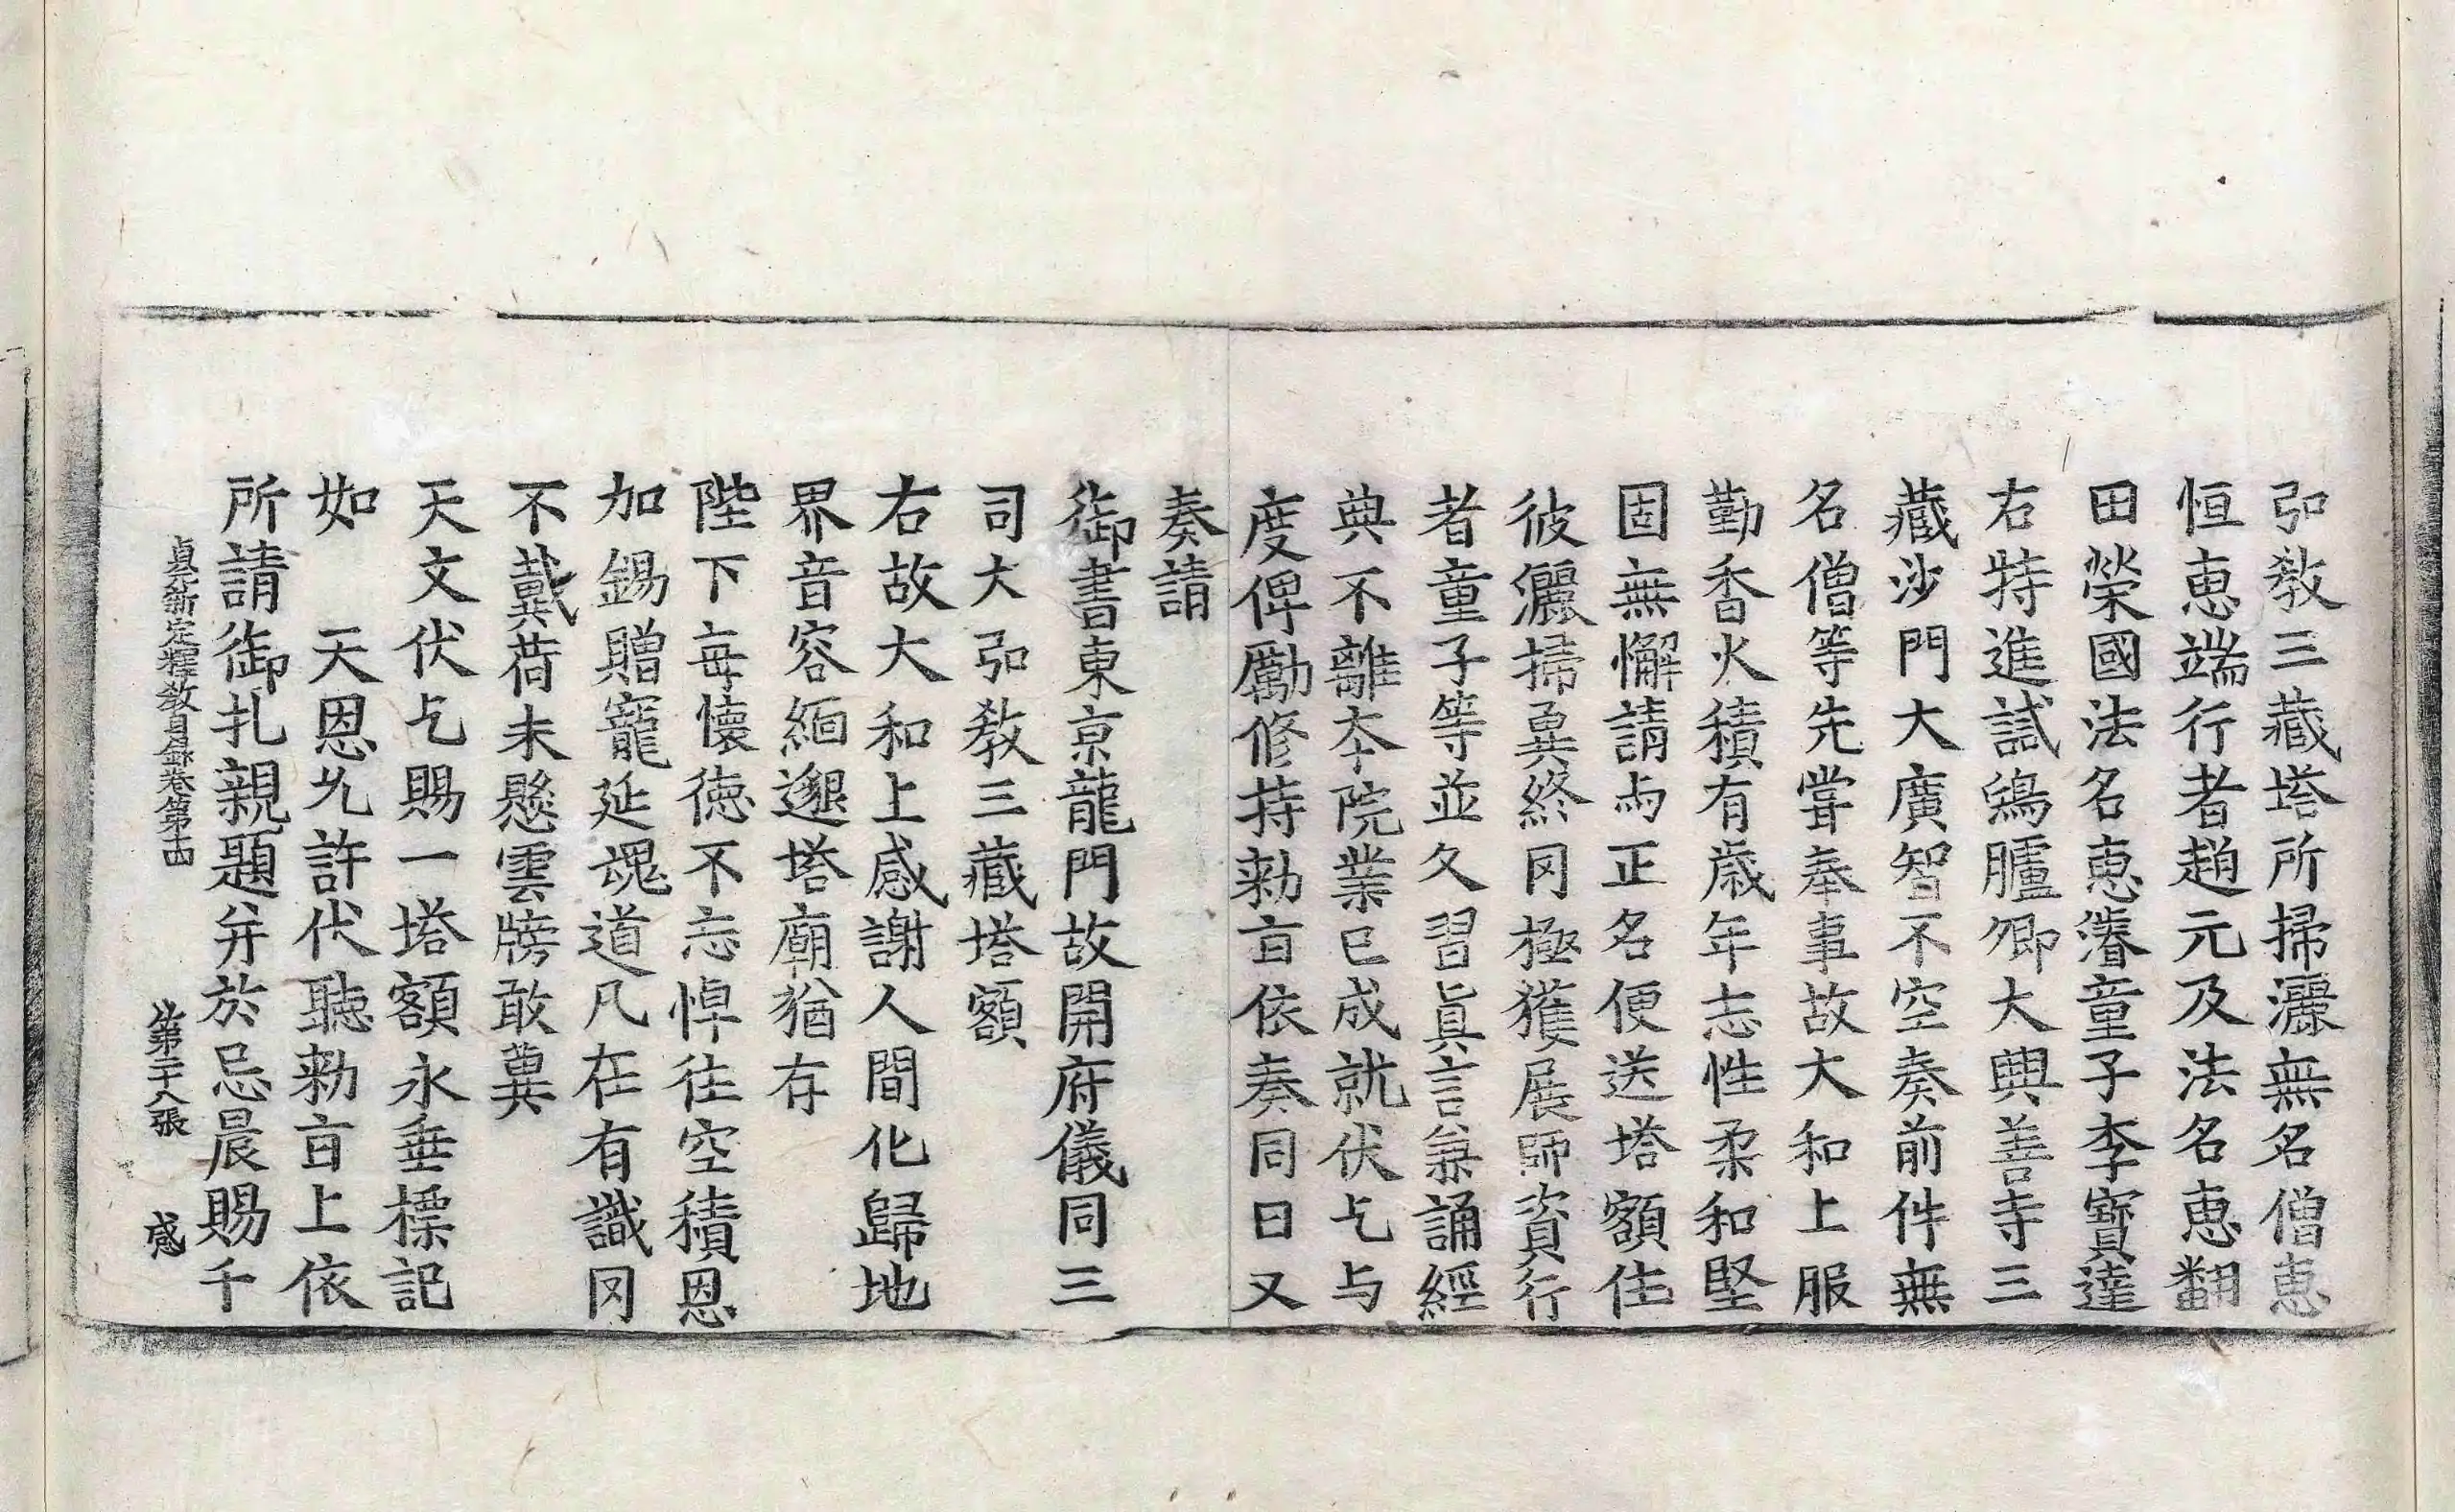 弘教三藏塔所掃灑無名僧惠
恒惠端行者趙元及法名惠翻
田榮國法名惠濬童子李寶達
右特進試鴻臚卿大興善寺三
藏沙門大廣智不空奏前件無
名僧等先甞奉事故大和上服
勤香火積有歲年志性柔和堅
固無懈請与正名便送塔額住
彼灑掃冀終罔極獲展師資行
者童子等並久習真言兼誦經
典不離本院業已成就伏乞与
度俾勵修持勑旨依奏同日又
奏請
御書東京龍門故開府儀同三
司大弘教三藏塔額
右故大和上感謝人間化歸地
界音容緬邈塔廟猶存
陛下每懷德不忘悼往空積恩
加錫贈寵延魂道凡在有識罔
不戴荷未懸雲牓敢冀
天文伏乞賜一塔額永垂標記
如 天恩允許伏聽勑旨上依
所請御扎親題并於忌晨賜千
貞元新定釋教目錄卷第十四 第二十八張 感